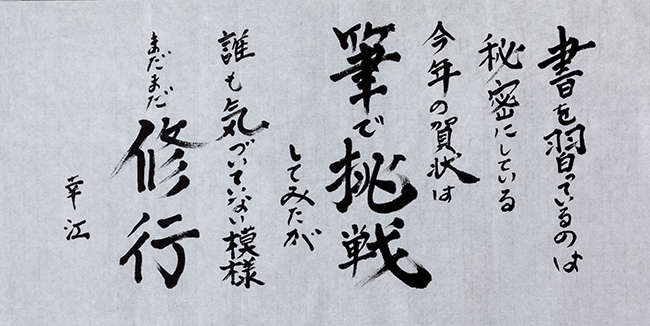 書を習っているのは
秘密にしている
今年の賀状は
筆で挑戦
してみたが
誰も気づいていない模様
まだまだ
修行
幸江